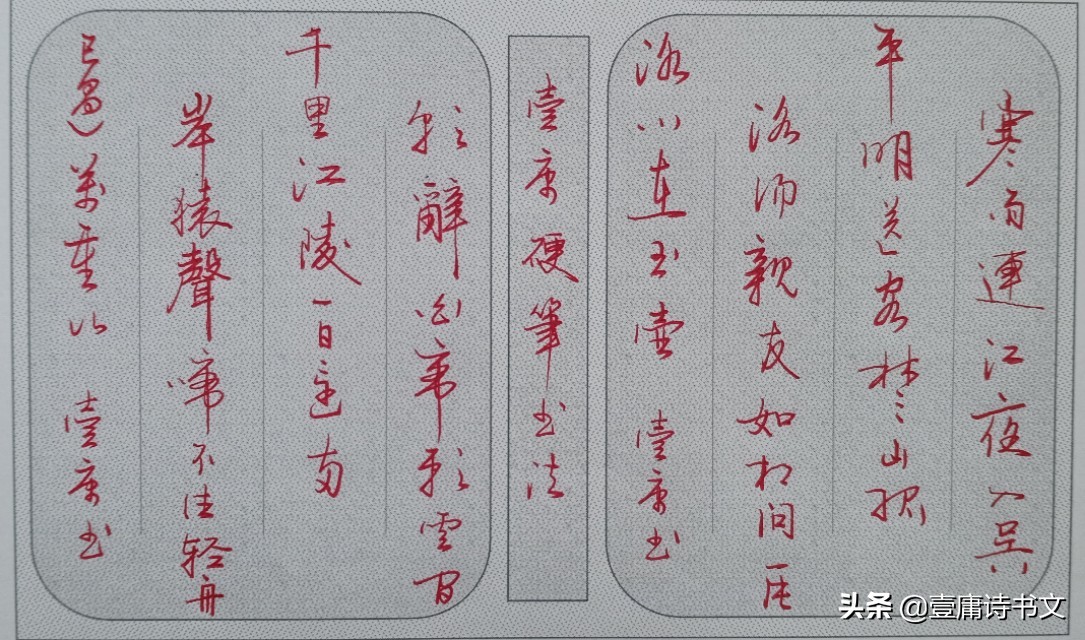 寒雨連江夜入吳
平明送客楚山孤
洛阳親友如相问一片
冰心在玉壶 壹庸书
壹庸硬筆书法
朝辭白帝彩雲间
千里江陵一日還两
岸猿聲啼不住轻舟
已過萬重山 壹庸书
头条 @壹庸诗书文